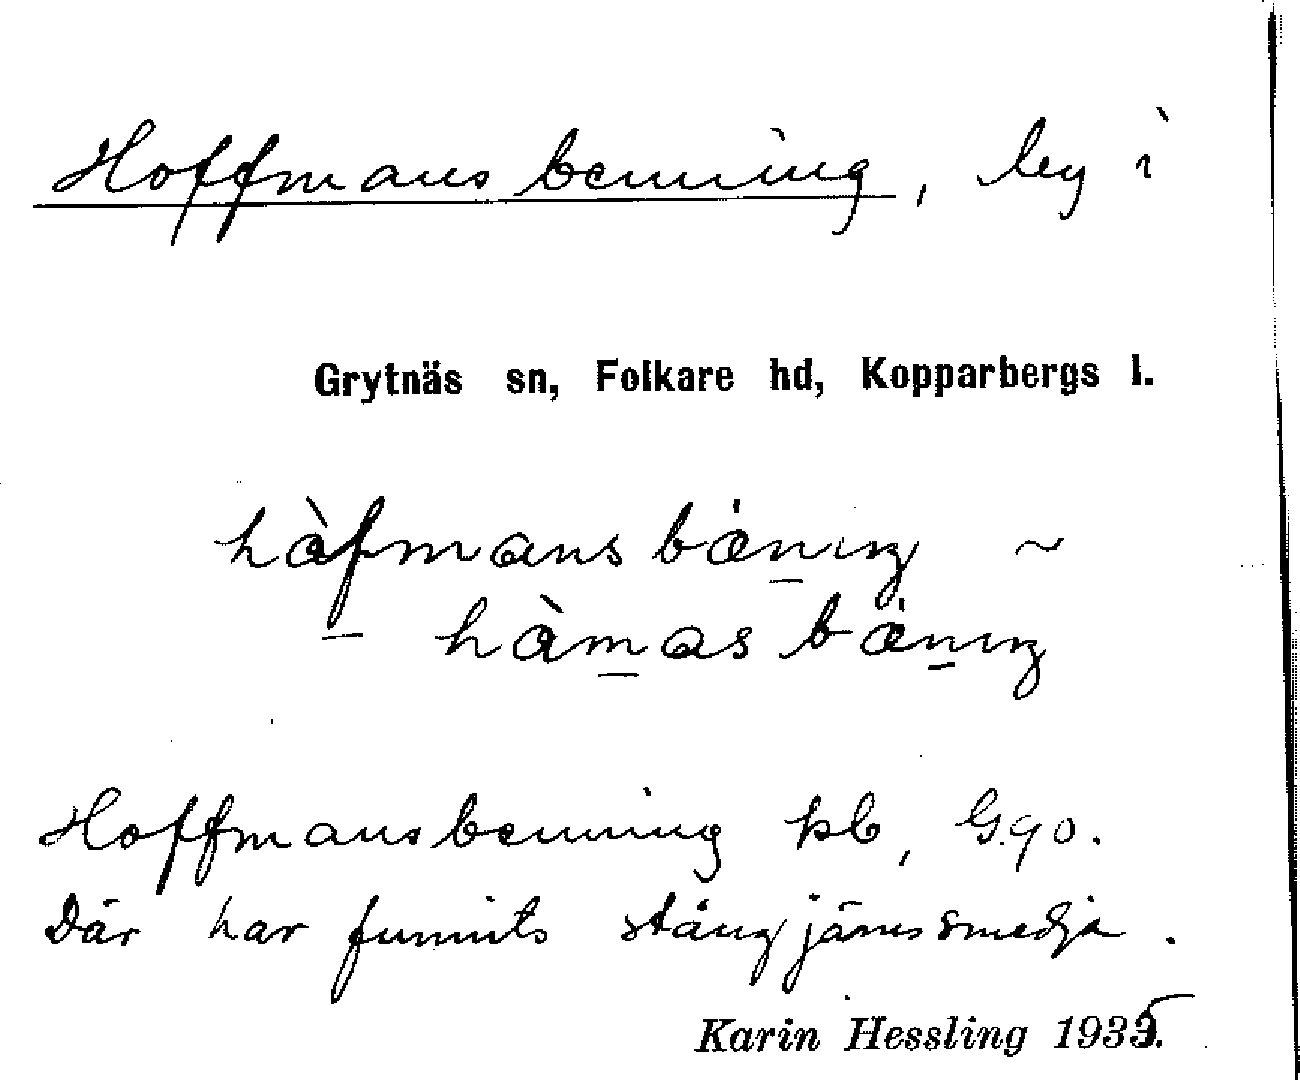 Hoffmansbenning, by i
Grytnäs sn, Folkare hd, Kopparbergs l.
hàfmansbäniŋ ~
hàmasbäniŋ
Hoffmansbenning kb, G.90.
Där har funnits stångjärnssmedja.
Karin Hessling 1935.